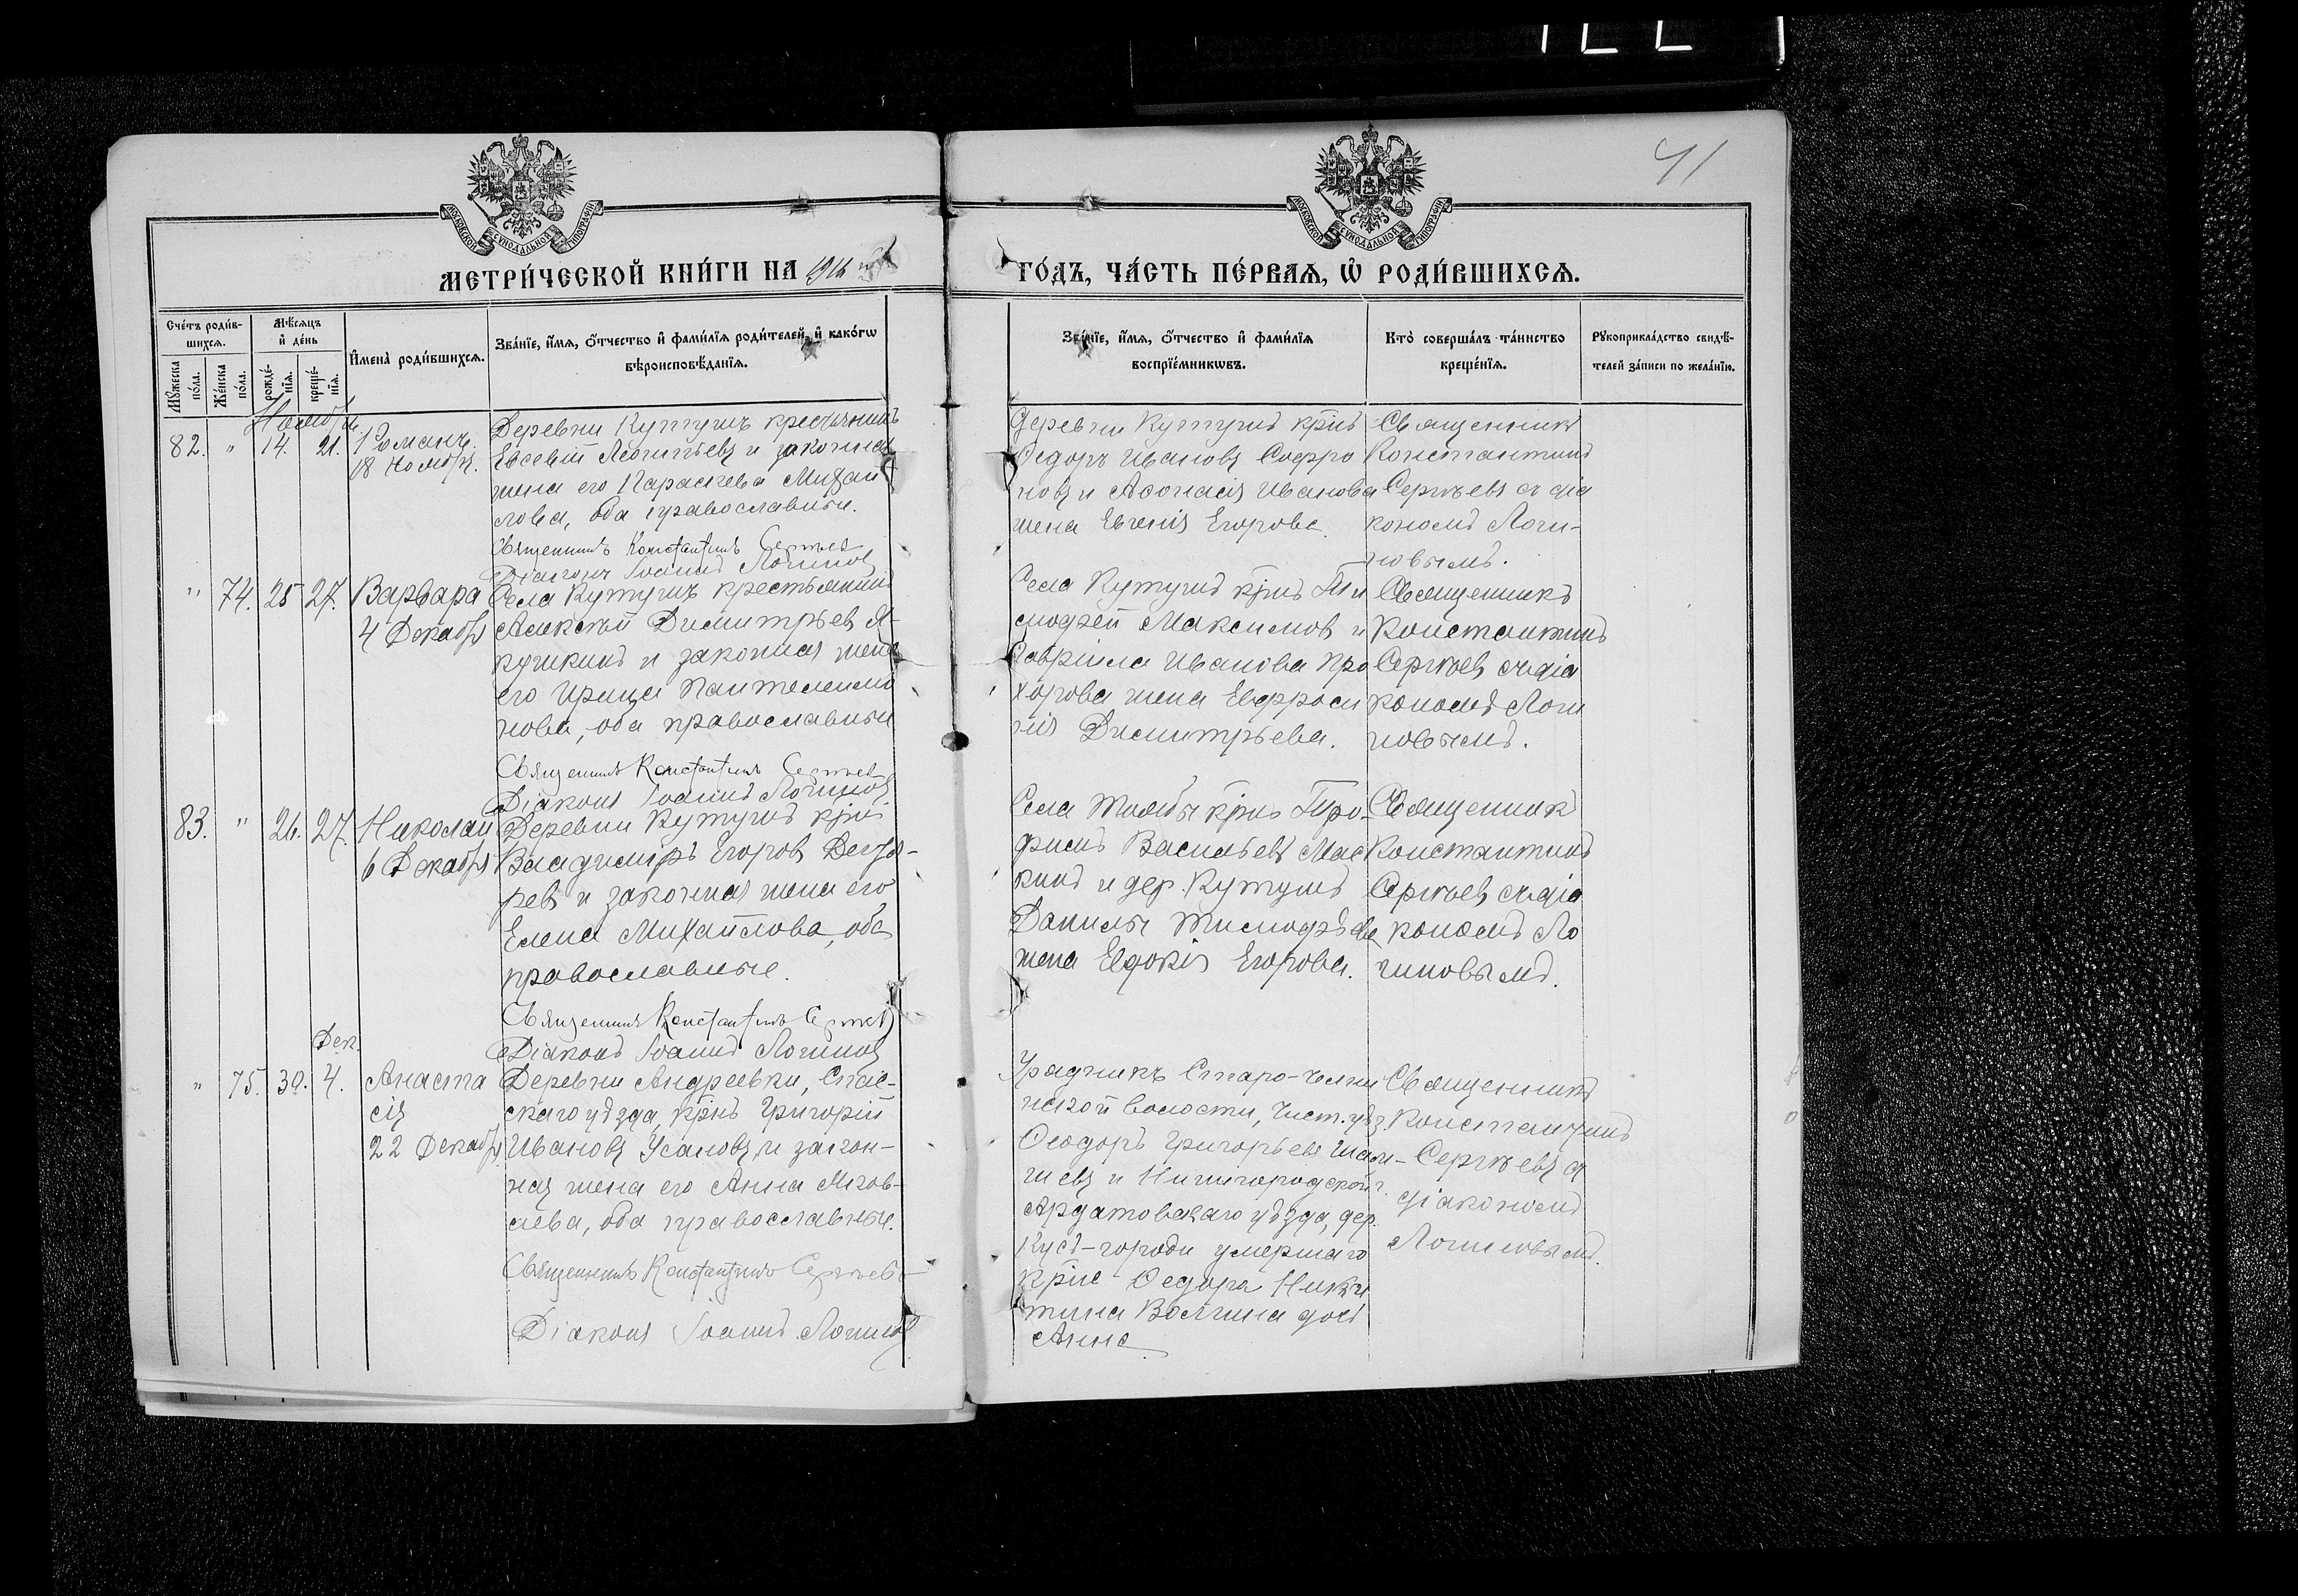 41
МОСКОВСКОЙ СѴНОДАЛЬНОЙ ТИПОГРАФІИ
МОСКОВСКОЙ СѴНОДАЛЬНОЙ ТИПОГРАФІИ
МЕТРИ́ЧЕСКОЙ КНИ́ГИ НА 1916
ГО́ДЪ, ЧА́СТЬ ПЕ́РВАЯ, Ѡ҆ РОДИ́ВШИХСЯ.
Сче́тъ роди́в-
шихся.
Мѣ́сяцъ
и҆ де́нь
Мꙋ́жеска
по́ла.
Же́нска
по́ла.
рожде́-
нїя.
креще́-
нїя.
И҆мена̀ роди́вшихся.
Зва́нїе, и҆́мя, ѻ҆́тчество и҆ фами́лїя роди́телей, и҆ како́гѡ
вѣроисповѣ́данїя.
Зва́нїе, и҆́мя, ѻ҆́тчество и҆ фами́лїя
воспрїе́мникѡвъ.
Кто̀ соверша́лъ та́инство
креще́нїя.
Рꙋкоприкла́дство свидѣ́-
телей за́писи по жела́нїю.
Ноябрь.
82. " 14. 21. Романъ.
18 Ноября.
Деревни Кутушъ крестьянинъ
Евсевій Леонтьевъ и законная
жена его Параскева Михай
лова, оба православные.
Священникъ Константинъ Сергѣевъ
Діаконъ Іоаннъ Логиновъ
Деревни Кутушъ крнъ
Ѳедоръ Ивановъ Софро
новъ и Аѳонасія Иванова
жена Евгенія Егорова.
Священникъ
Константинъ
Сергѣевъ съ діа
кономъ Логи-
новымъ.
" 74. 25 27. Варвара
4 Декабря
Села Кутушъ крестьянинъ
Алексѣй Димитріевъ Я-
кушкинъ и законная жена
его Ирина Пантелеимо
нова, оба православные
Священникъ Константинъ Сергѣевъ
Діаконъ Іоаннъ Логиновъ
Села Кутушъ крнъ Ти
моѳей Максимовъ и
Гавріила Иванова Про
хорова жена Евфроси
нія Димитріева.
Священникъ
Константинъ
Сергѣевъ съ діа
кономъ Логи
новымъ.
83. " 26. 27. Николай
6 Декабря
Деревни Кутушъ крнъ
Владиміръ Егоровъ Дегтя-
ревъ и законная жена его
Елена Михайлова, оба
православные.
Священникъ Константинъ Сергѣевъ
Діаконъ Іоаннъ Логиновъ
Села крнъ Тро-
фимъ Васильевъ
кинъ и дер. Кутушъ
Данилы Тимоѳѣева
жена Евдокія Егорова.
Священникъ
Константинъ
Сергѣевъ съ діа
кономъ Ло
гиновымъ.
Дек.
" 75. 30. 4. Анаста
сія
22 Декабря
Деревни Андреевки, Спас-
скаго уѣзда, крнъ Григорій
Ивановъ Усановъ и закон-
ная жена его Анна Яков-
лева, оба православные.
Священникъ Константинъ Сергѣевъ
Діаконъ Іоаннъ Логиновъ
Урядникъ Старо-
волости, Чист. уѣз.
Ѳеодоръ Григорьевъ
и Нижегородской г.
Ардатовскаго уѣзда, дер.
умершаго
крне Ѳедора Ники
тина Волгина дочь
Анна
Священникъ
Константинъ
Сергѣевъ съ
діакономъ
Логиновымъ.